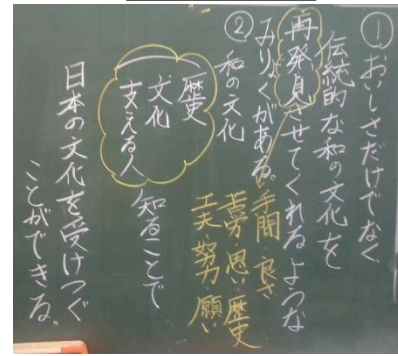 ①おいしさだけでなく
伝統的な和の文化を
再発見させてくれるような
みりょくがある。
手間 良さ
苦労・思い・歴史
工夫・努力・願い
②和の文化
歴史
文化
支える人
知ることで
日本の文化を受けつぐ
ことができる。